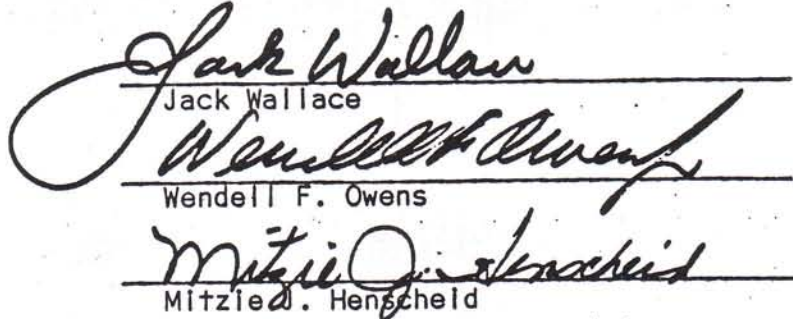 Jack Wallace
Jack Wallace
Wendell F Owens
Wendell F. Owens
Mitzie J. Henscheid
Mitzie J. Henscheid